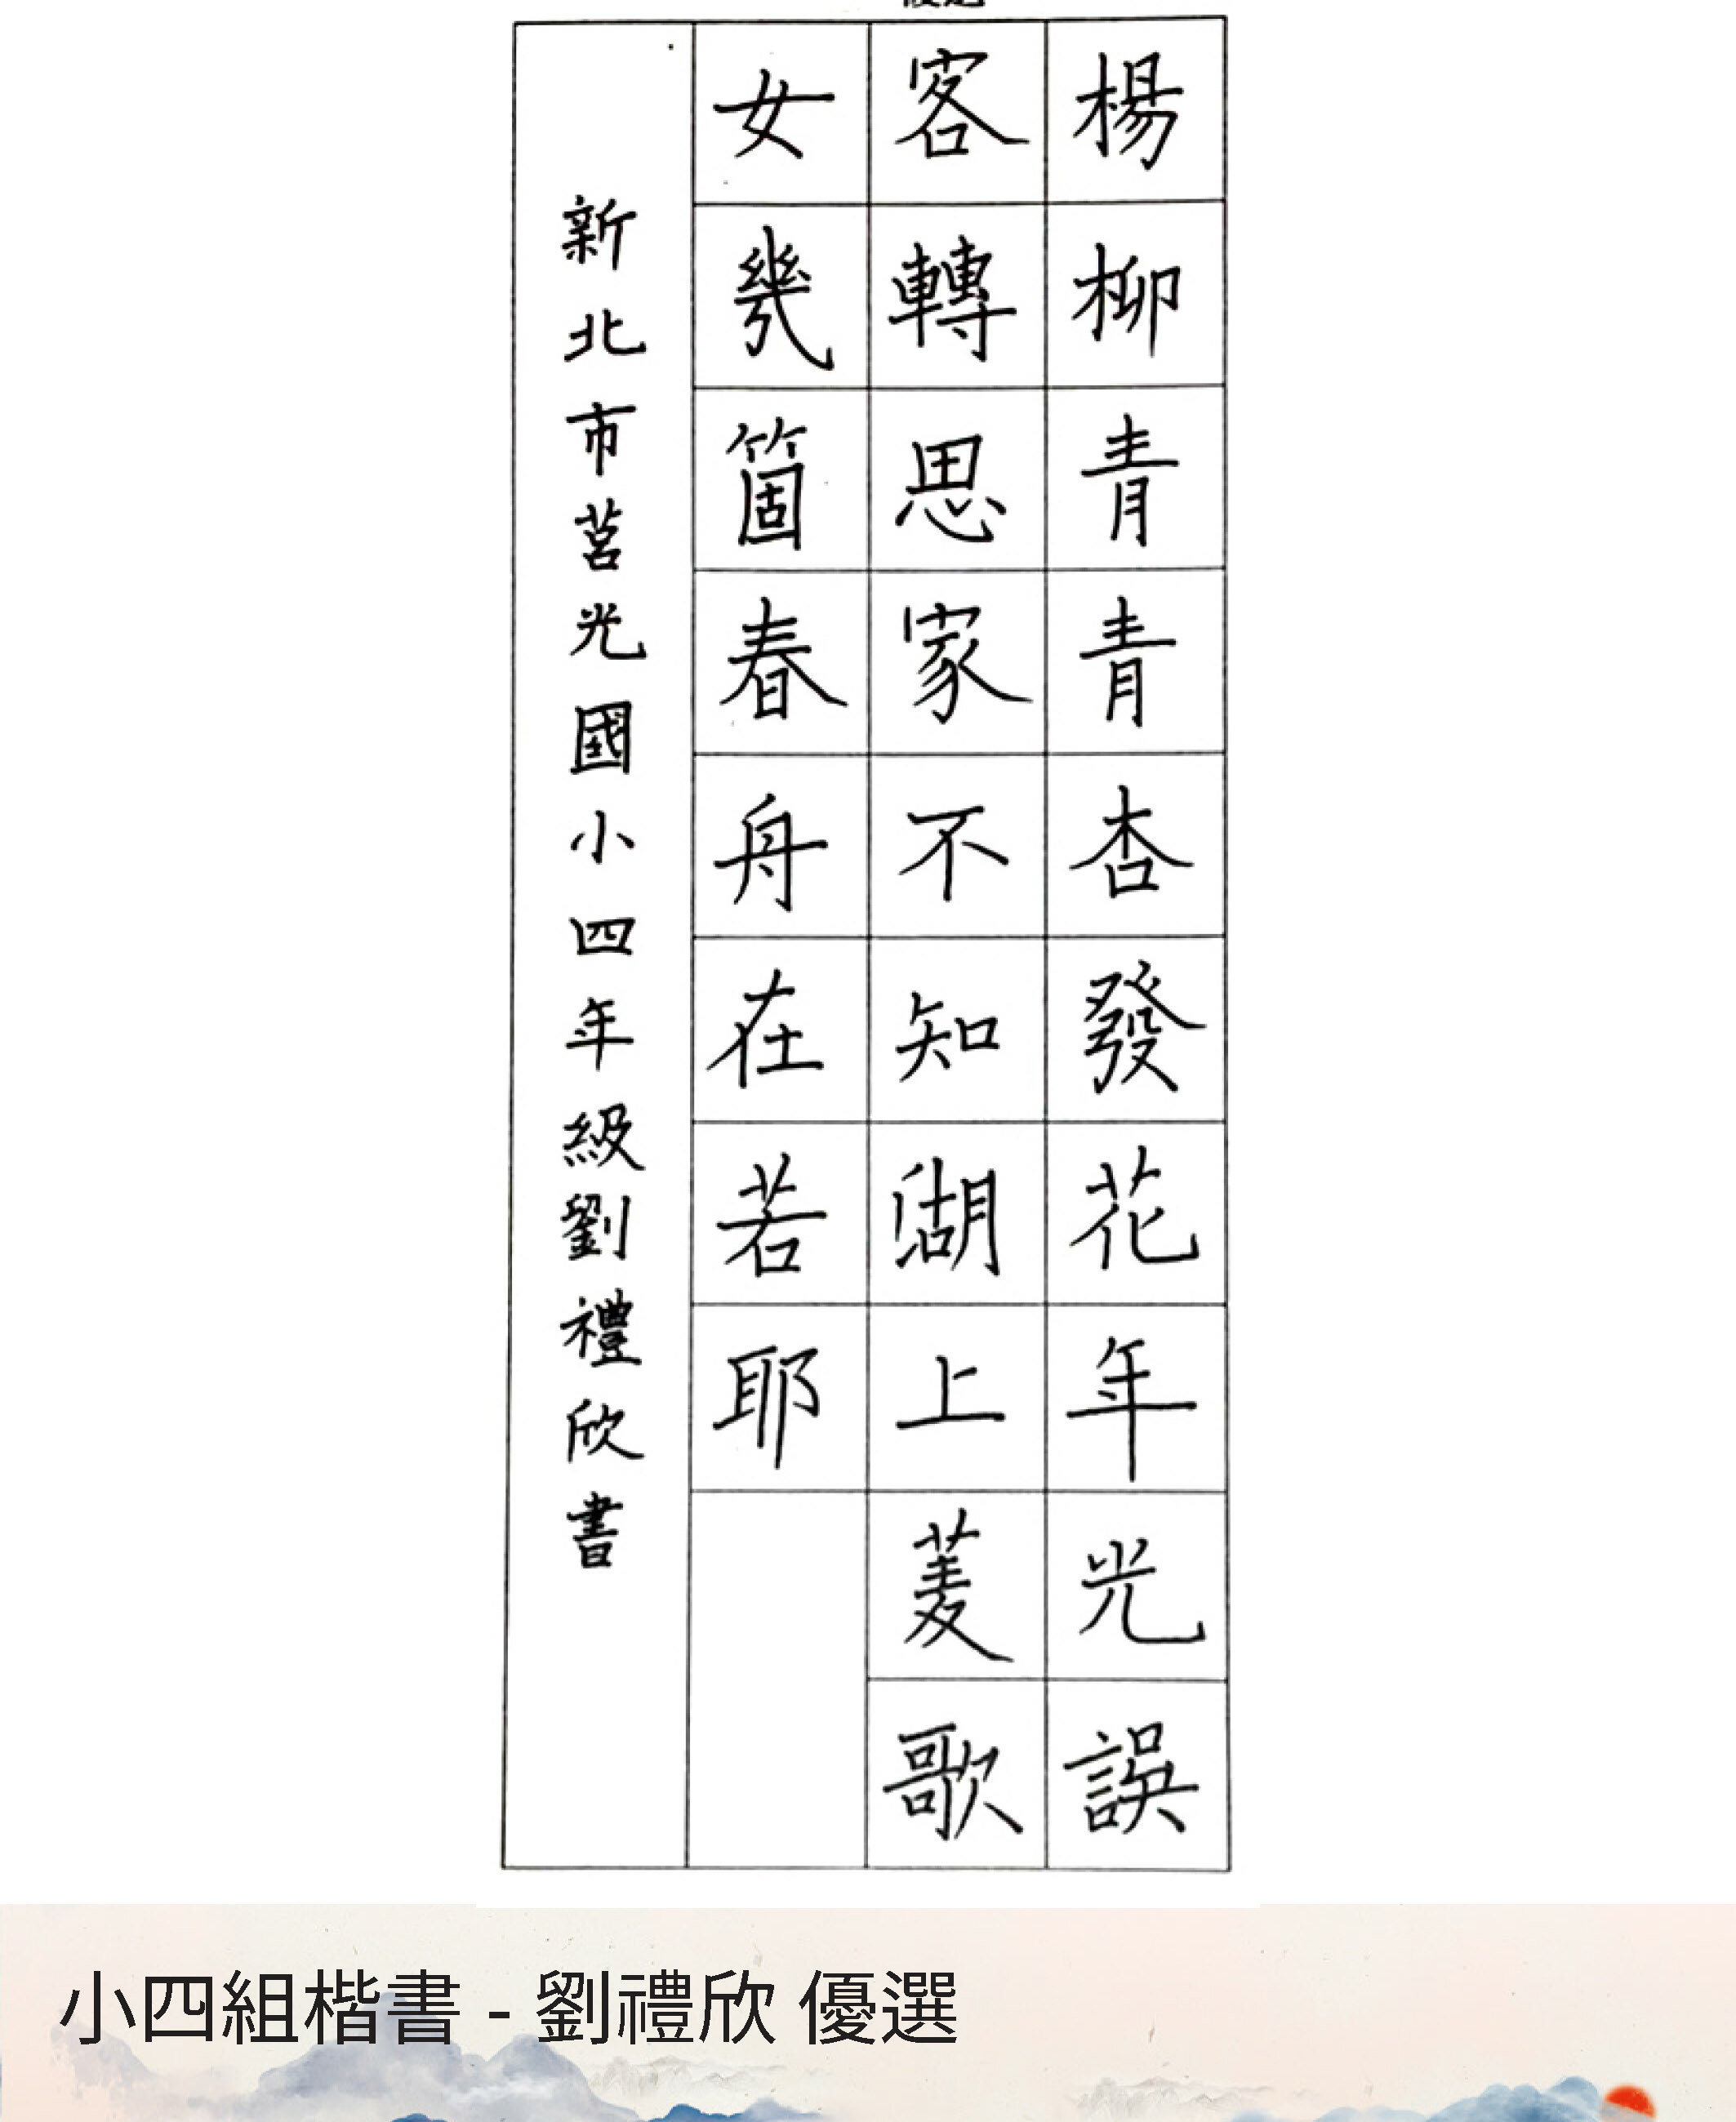 楊柳青青杏發花年光誤
客轉思家不知湖上菱歌
女幾箇春舟在若耶
新北市莒光國小四年級劉禮欣書
小四組楷書 - 劉禮欣 優選